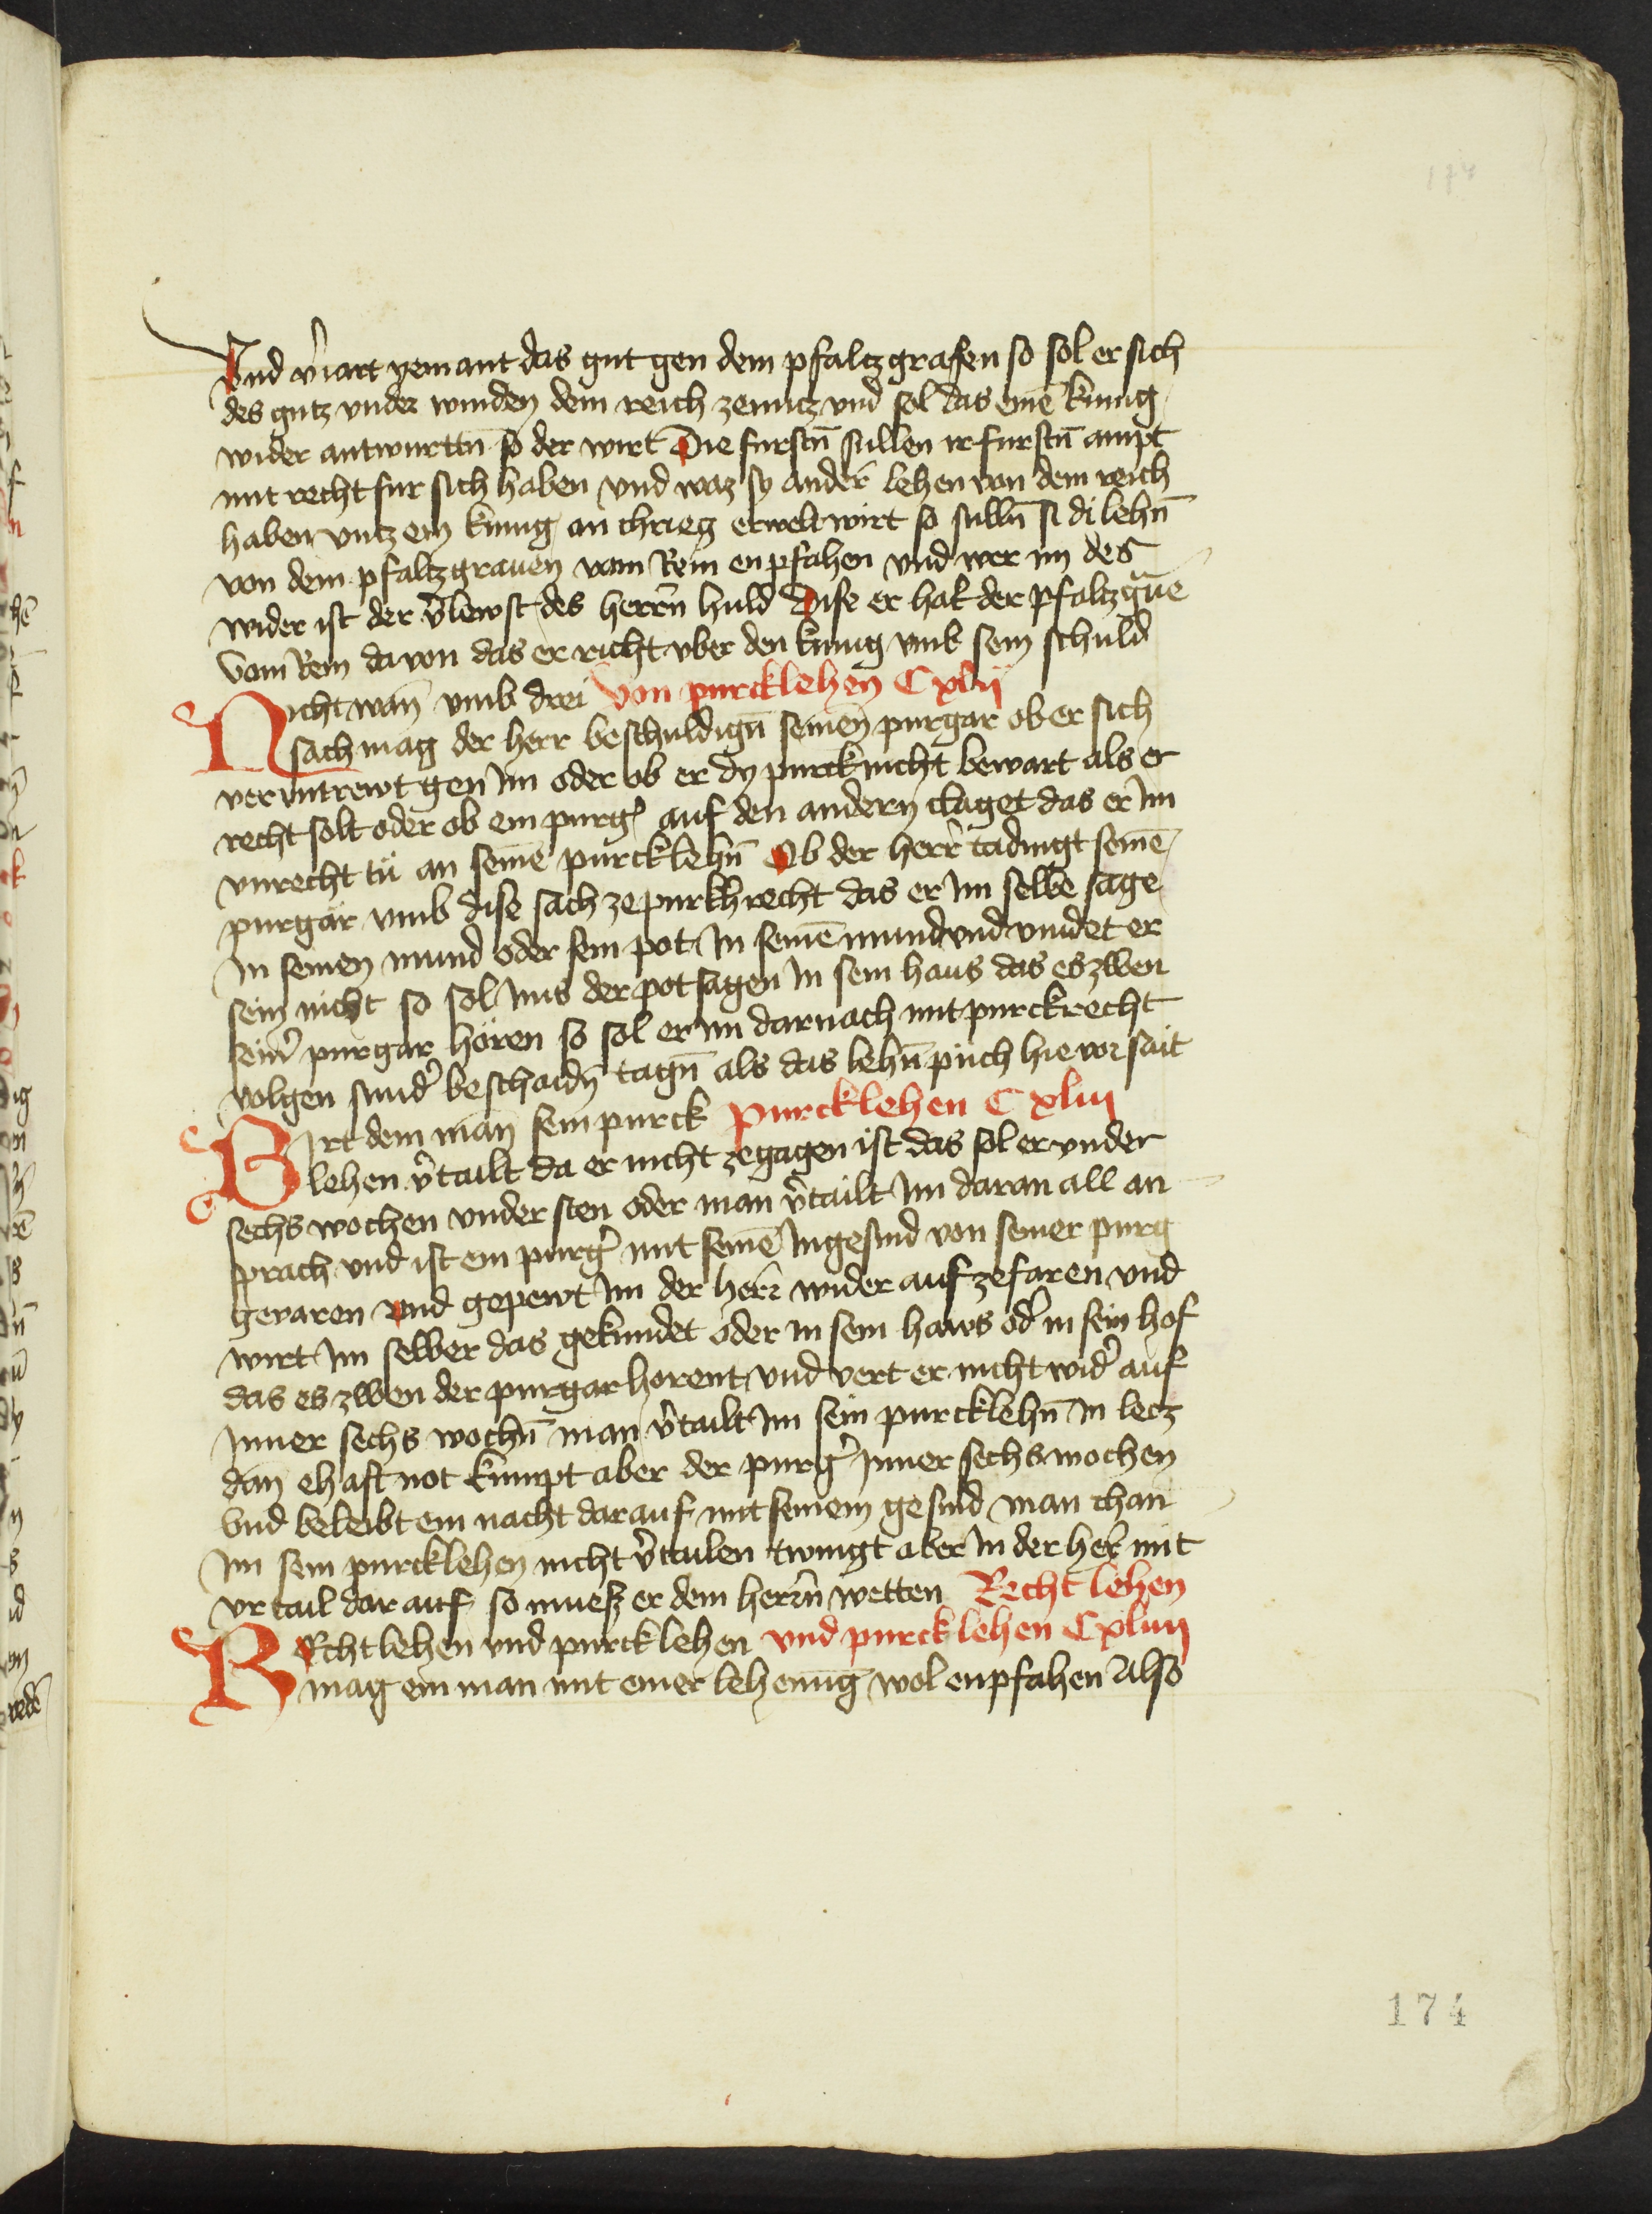 174
Vnd v̾iart yemant das gut gen dem pfaltzgraffen so sol er sich
des gutz vnder winden dem reich zenutz vnd sol das eine᷑ kunig
wider antwurttn̄ so der wirt Die furstn̄ sullen ir furstn̄ ampt
mit recht fur sich haben vnd waz sy ander lehen von dem reich
haben vntz ein kunig an chrieg erwelt wirt so sulln̄ si di lehn̄
von dem pfaltzgrauen vom Rein enpfahen vnd wer im des
wider ist der v̾lewst des herrn̄ huld Dise er hat der pfaltzgrāue
vom Rein da von das er richt vber den kunig vmb sein schuld
Nicht wan̄ vmb drei Von purcklehen Cxlij
sach mag der herr beschuldign̄ seinen purgar ob er sich
ver vntrewt gen im oder ob er dy purck nicht bewart als er
recht solt oder ob ein purg̾ auf den andern claget das er im
vnrecht tü an seinē purcklehn̄ Ob der herr tadingt seinē
purgar vmb dise sach ze purkhrecht das er im selbē sage
in seinen mund oder sein pot in seinē mund vnd vindet er
sein nicht so sol ims der pot sagen in sein haus das es zwen
sein̾ purgar hören so sol er im darnach mit purckrecht
volgen sund̾ beschaidn̄ tagn̄ als das lehn̄ puch hie vor sait
Wirt dem man sein purck purcklehen Cxliij
lehen v̾tailt da er nicht zegagen ist das sol er vnder
sechs wochen vnder sten oder man v̾tailt im daran all an
sprach vnd ist ein purg̾ mit seinē ingesind von seiner purg
gevaren vnd gepewt im der herr wider auf zefaren vnd
wirt im selber das gekundet oder in sein haws od̾ in sein hof
das es zwen der purgar horent vnd vert er nicht wid̾ auf
inner sechs wochn̄ man v̾tailt im sein purcklehn̄ in letz
dan ehaft not kumpt aber der purg̾ inner sechs wochen
vnd beleibt ein nacht darauf mit seinem gesind man chan
im sein purcklehen nicht v̾tailen twingt aber in der herr mit
vrtail dar auf so muesz er dem herrn̄ wetten Recht lehen
Recht lehen vnd purcklehen vnd purcklehen Cxliiij
mag ein man mit einer lehenūg wol enpfahen Also
174